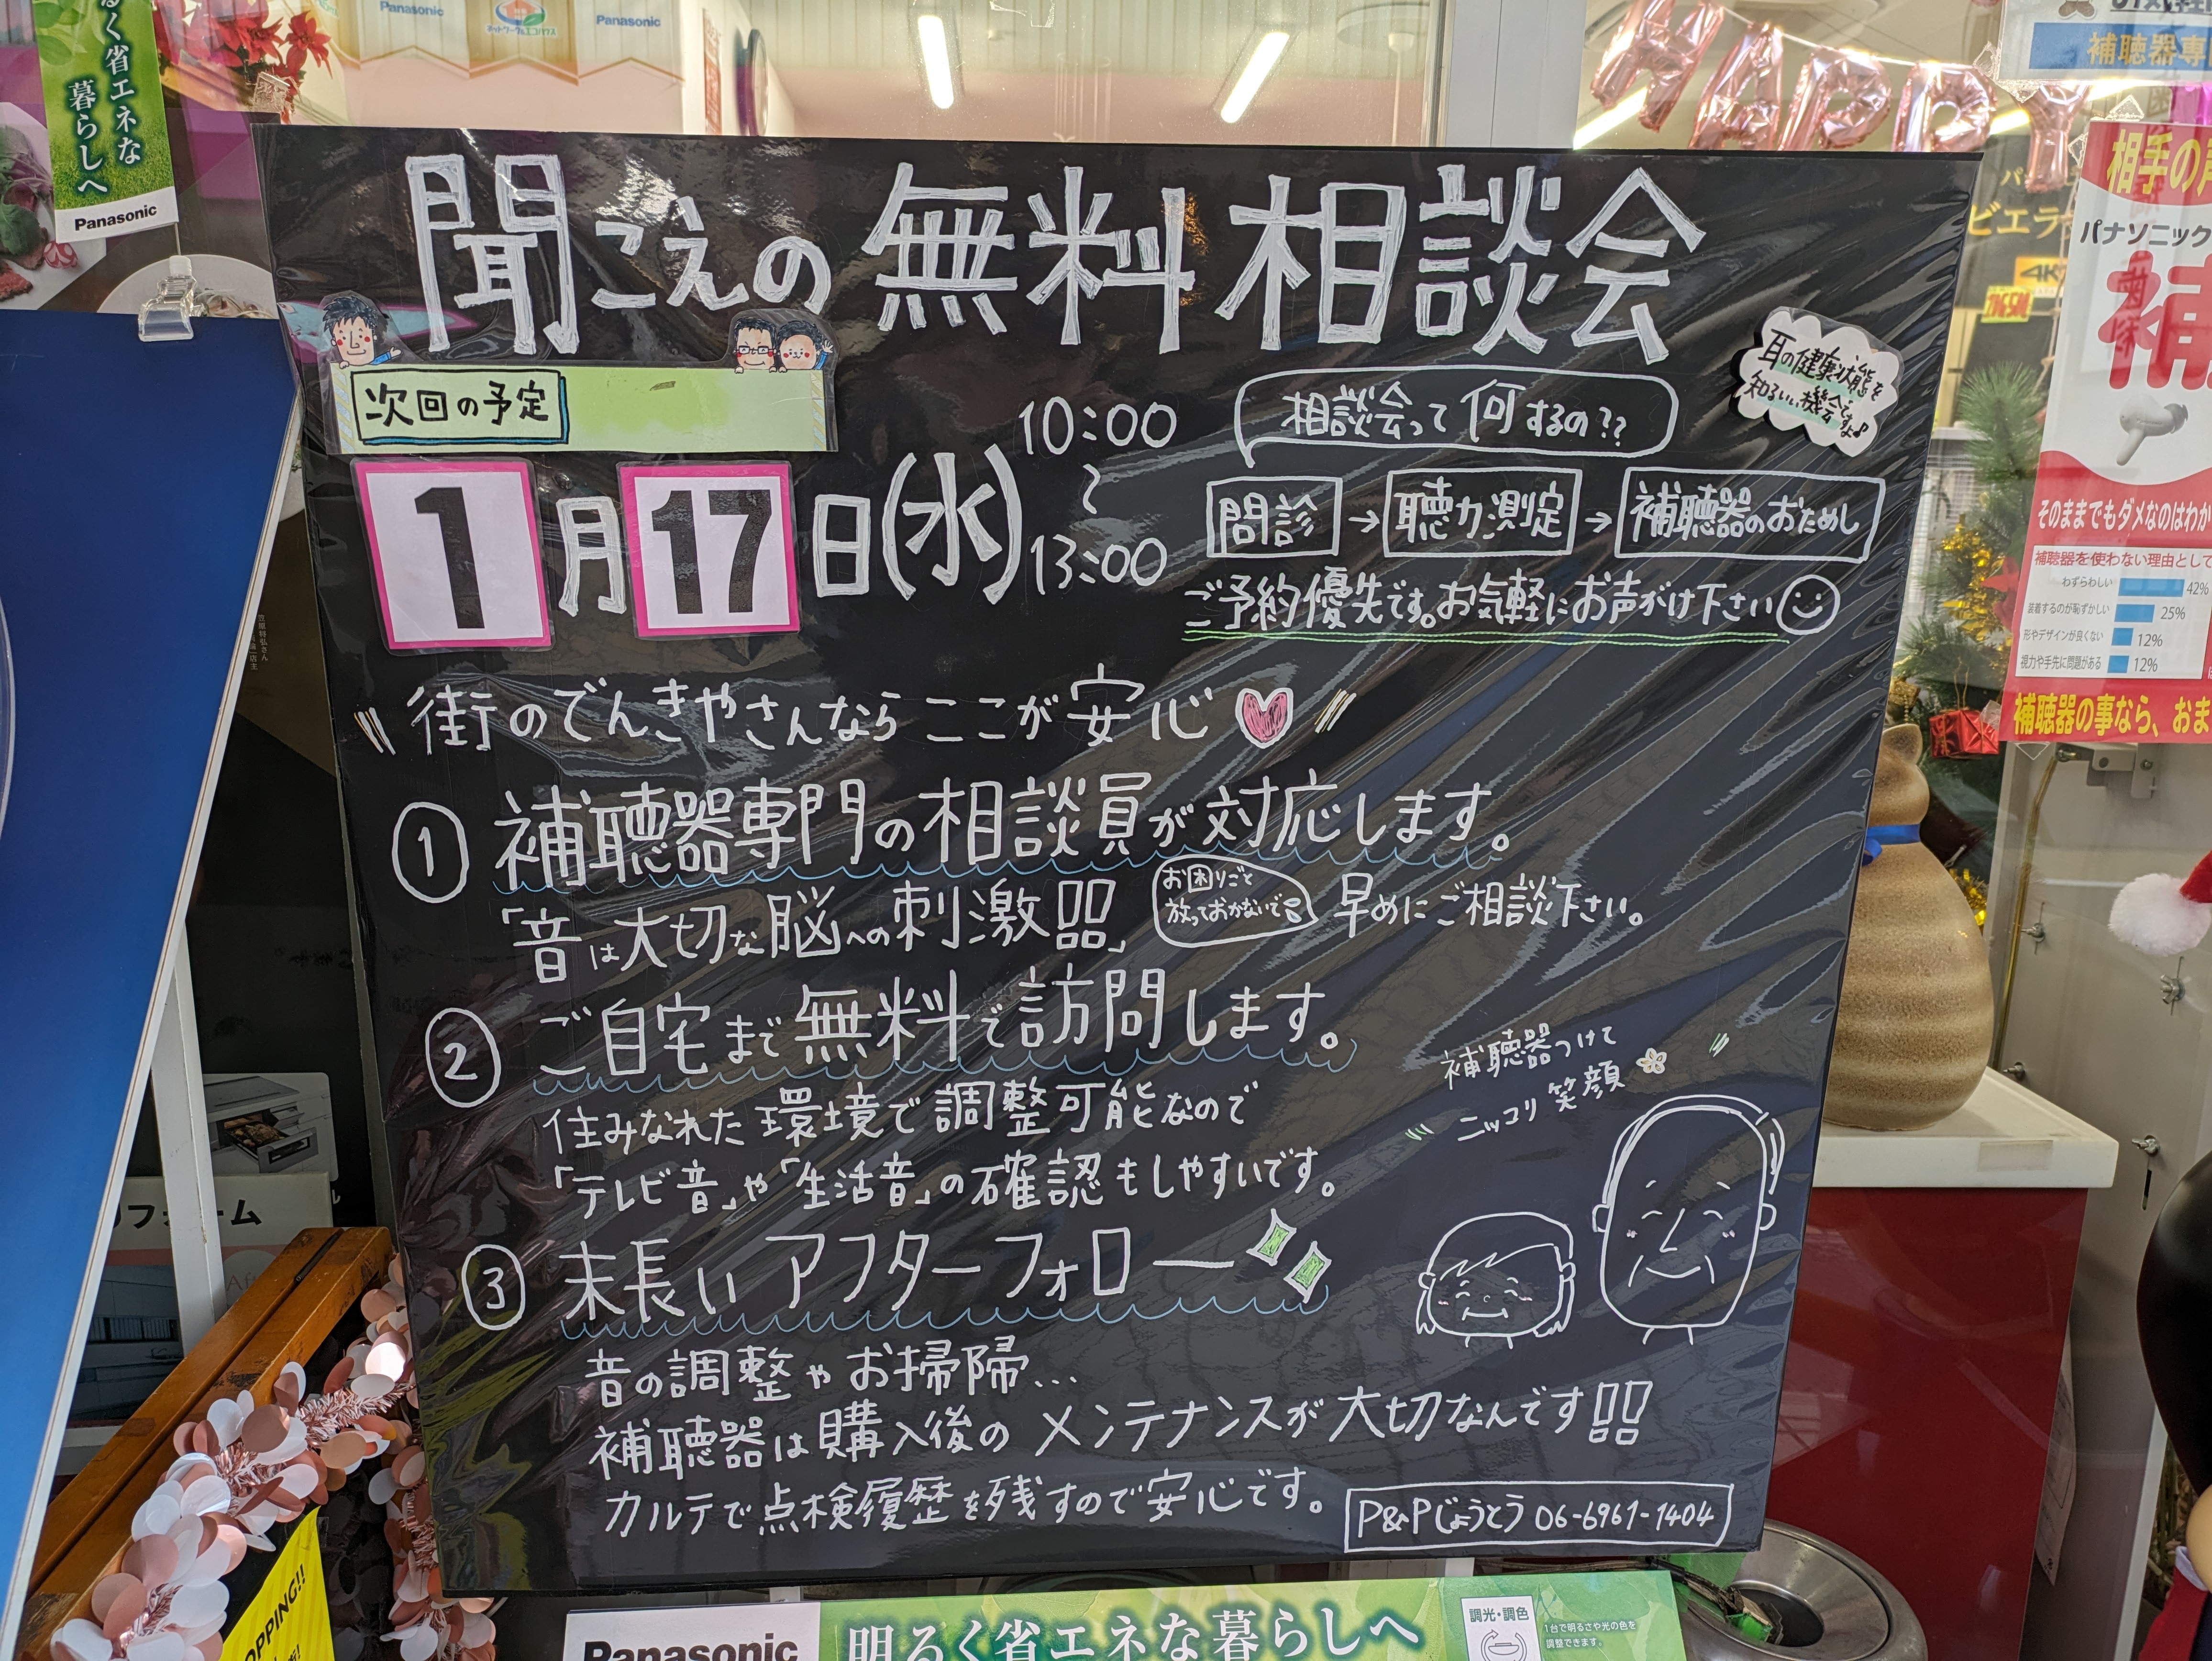 くく省エネな
暮らしへ
Panasonic
Panasonic
Panasonic
HAPPY
聞こえの無料相談会
次回の予定
1月17日(水)
10:00
~
13:00
相談会って何するの??
耳の健康状態を
知るいい機会ですよ♪
問診→聴力測定→補聴器のおためし
ご予約優先です。お気軽にお声がけ下さい
街のでんきやさんなら ここが安心
① 補聴器専門の相談員が対応します。
「音は大切な脳への刺激!!」
お困りごと
放っておかないで
早めにご相談下さい。
② ご自宅まで無料で訪問します。
住みなれた環境で調整可能なので
「テレビ音」や「生活音」の確認もしやすいです。
補聴器つけて
ニッコリ笑顔
③ 末長い アフターフォロー
音の調整やお掃帰...
補聴器は購入後のメンテナンスが大切なんです!!
カルテで点検履歴を残すので安心です。
P&Pじょうとう 06-6961-1404
補聴器専
相手の声
パナソニック
補
そのままでもダメなのはわか
補聴器を使わない理由として
わずらわしい 42%
装着するのが恥ずかしい 25%
形やデザインが良くない 12%
視力や手先に問題がある 12%
補聴器の事なら、おま
ビエラ
4K
リフォーム
OPPING!!
Panasonic
明るく省エネな暮らしへ
調光・調色
1台で明るさや光の色を
調整できます。